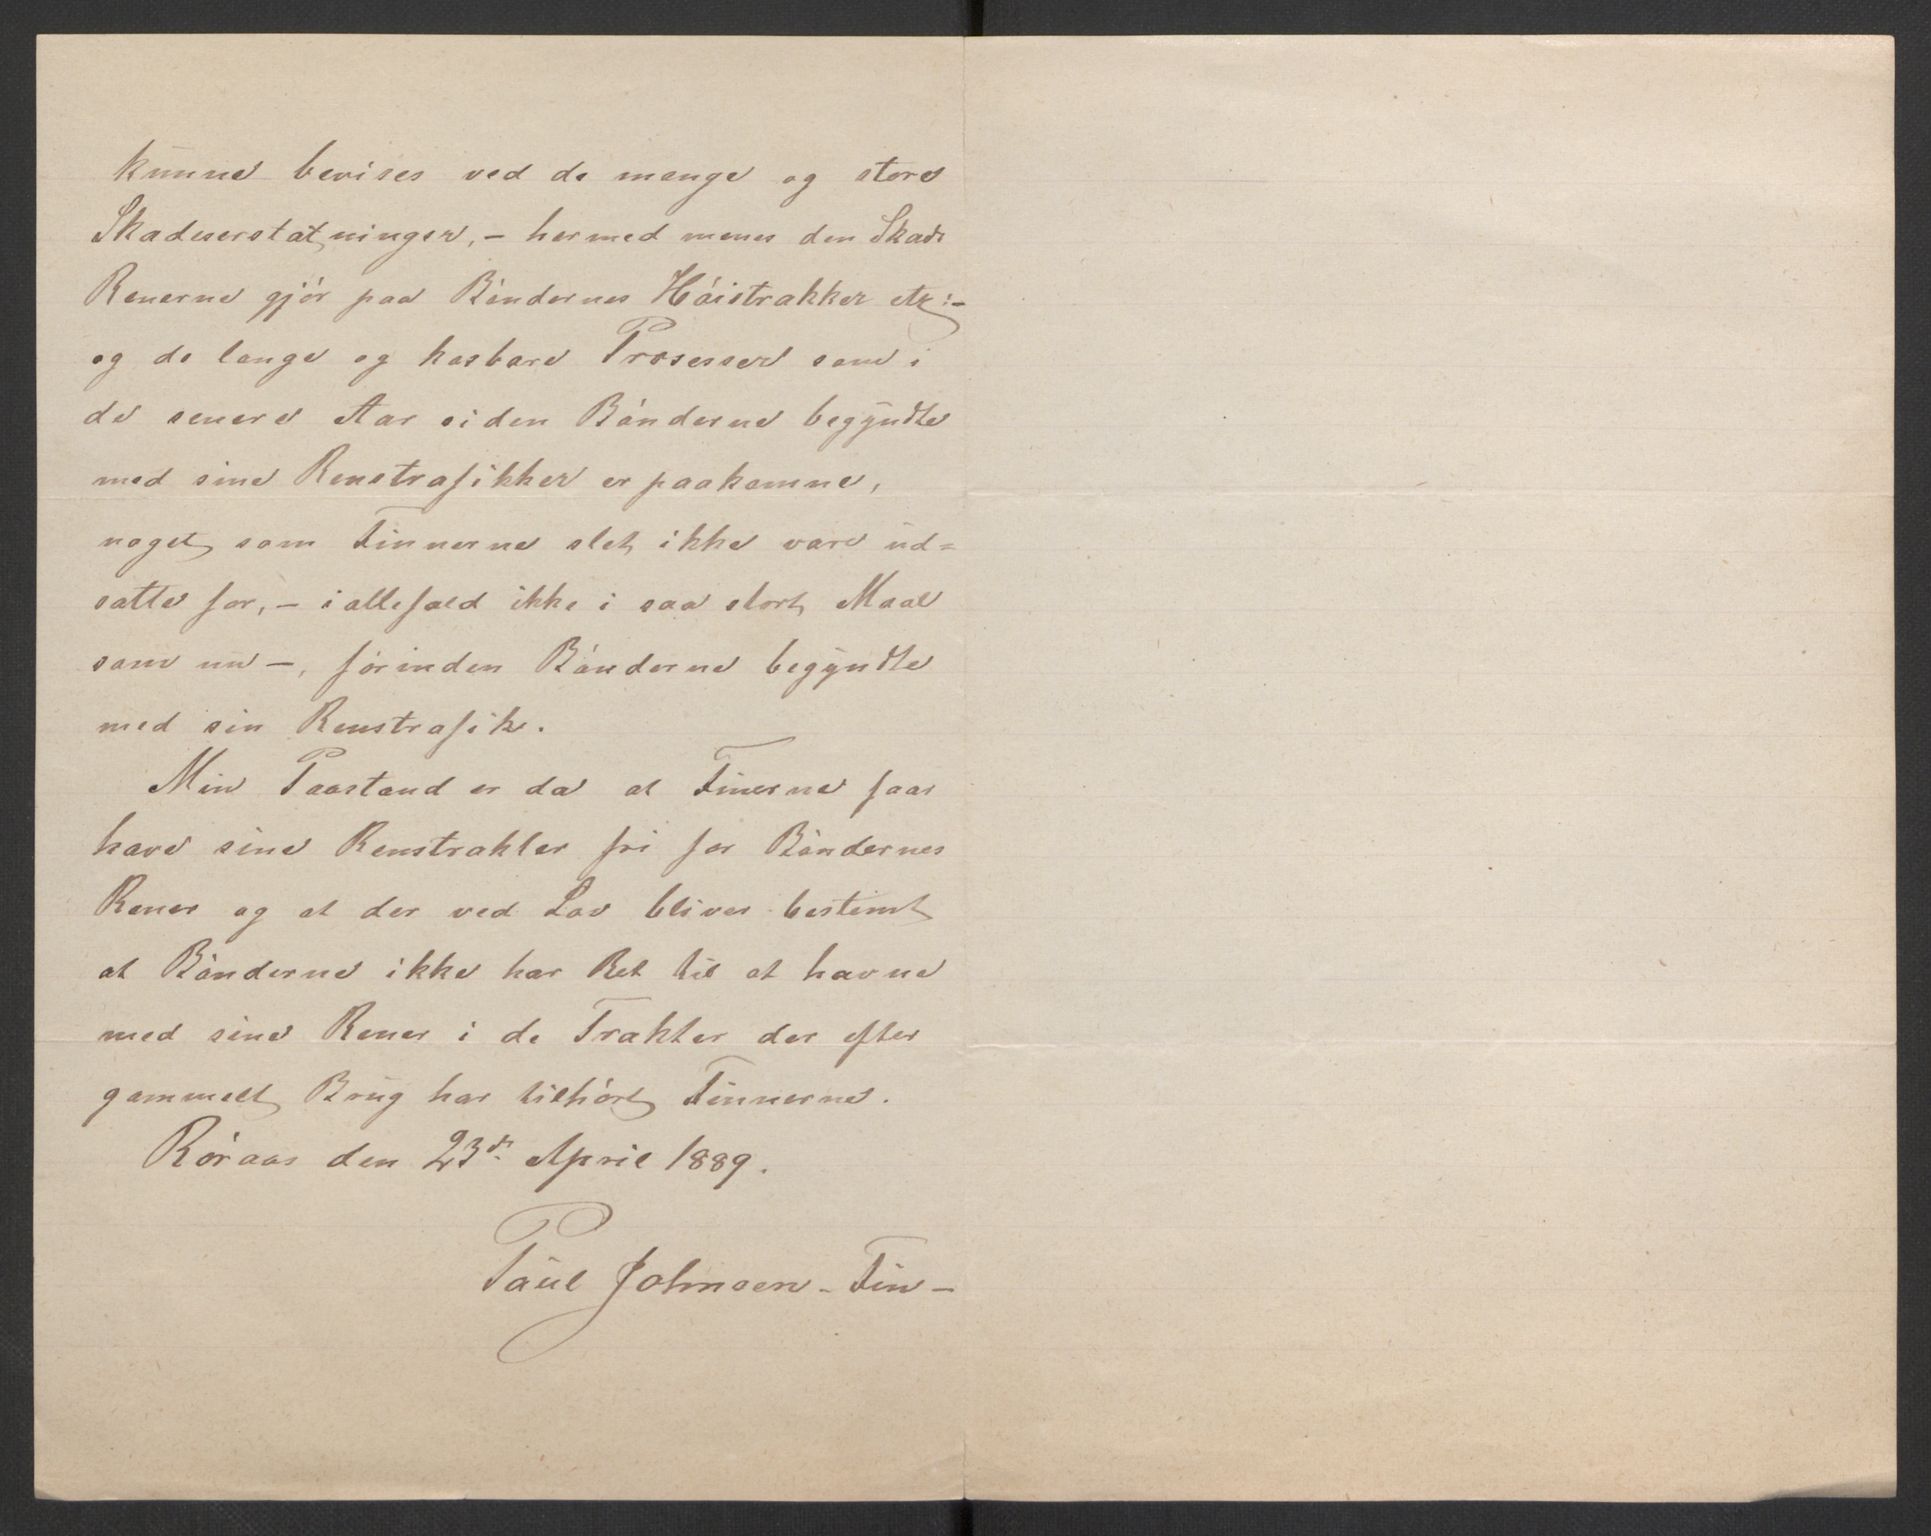 kunne bevises ved de mange og store
Skadeserstatninger, – hermed menes den Skade
Renerne gjör paa Böndernes Höistrakker etz: –
og de lange og kosbare Prosesser som i
de senere Aar siden Bönderne begyndte
med sine Renstrafikker er paakomne,
noget som Finnerne slet ikke vare ud=
satte for, – i allefald ikke i saa stort Maal
som nu –, förinden Bönderne begyndte
med sin Renstrafik.
Min Paastand er da at Finerne faar
have sine Renstrakter fri for Böndernes
Rener og at der ved Lov bliver bestemt
at Bönderne ikke har Ret til at havne
med sine Rener i de Trakter der efter
gammelt Brug har tilhört Finnerne.
Röraas den 23de April 1889.
Paul Johnsen – Fin –